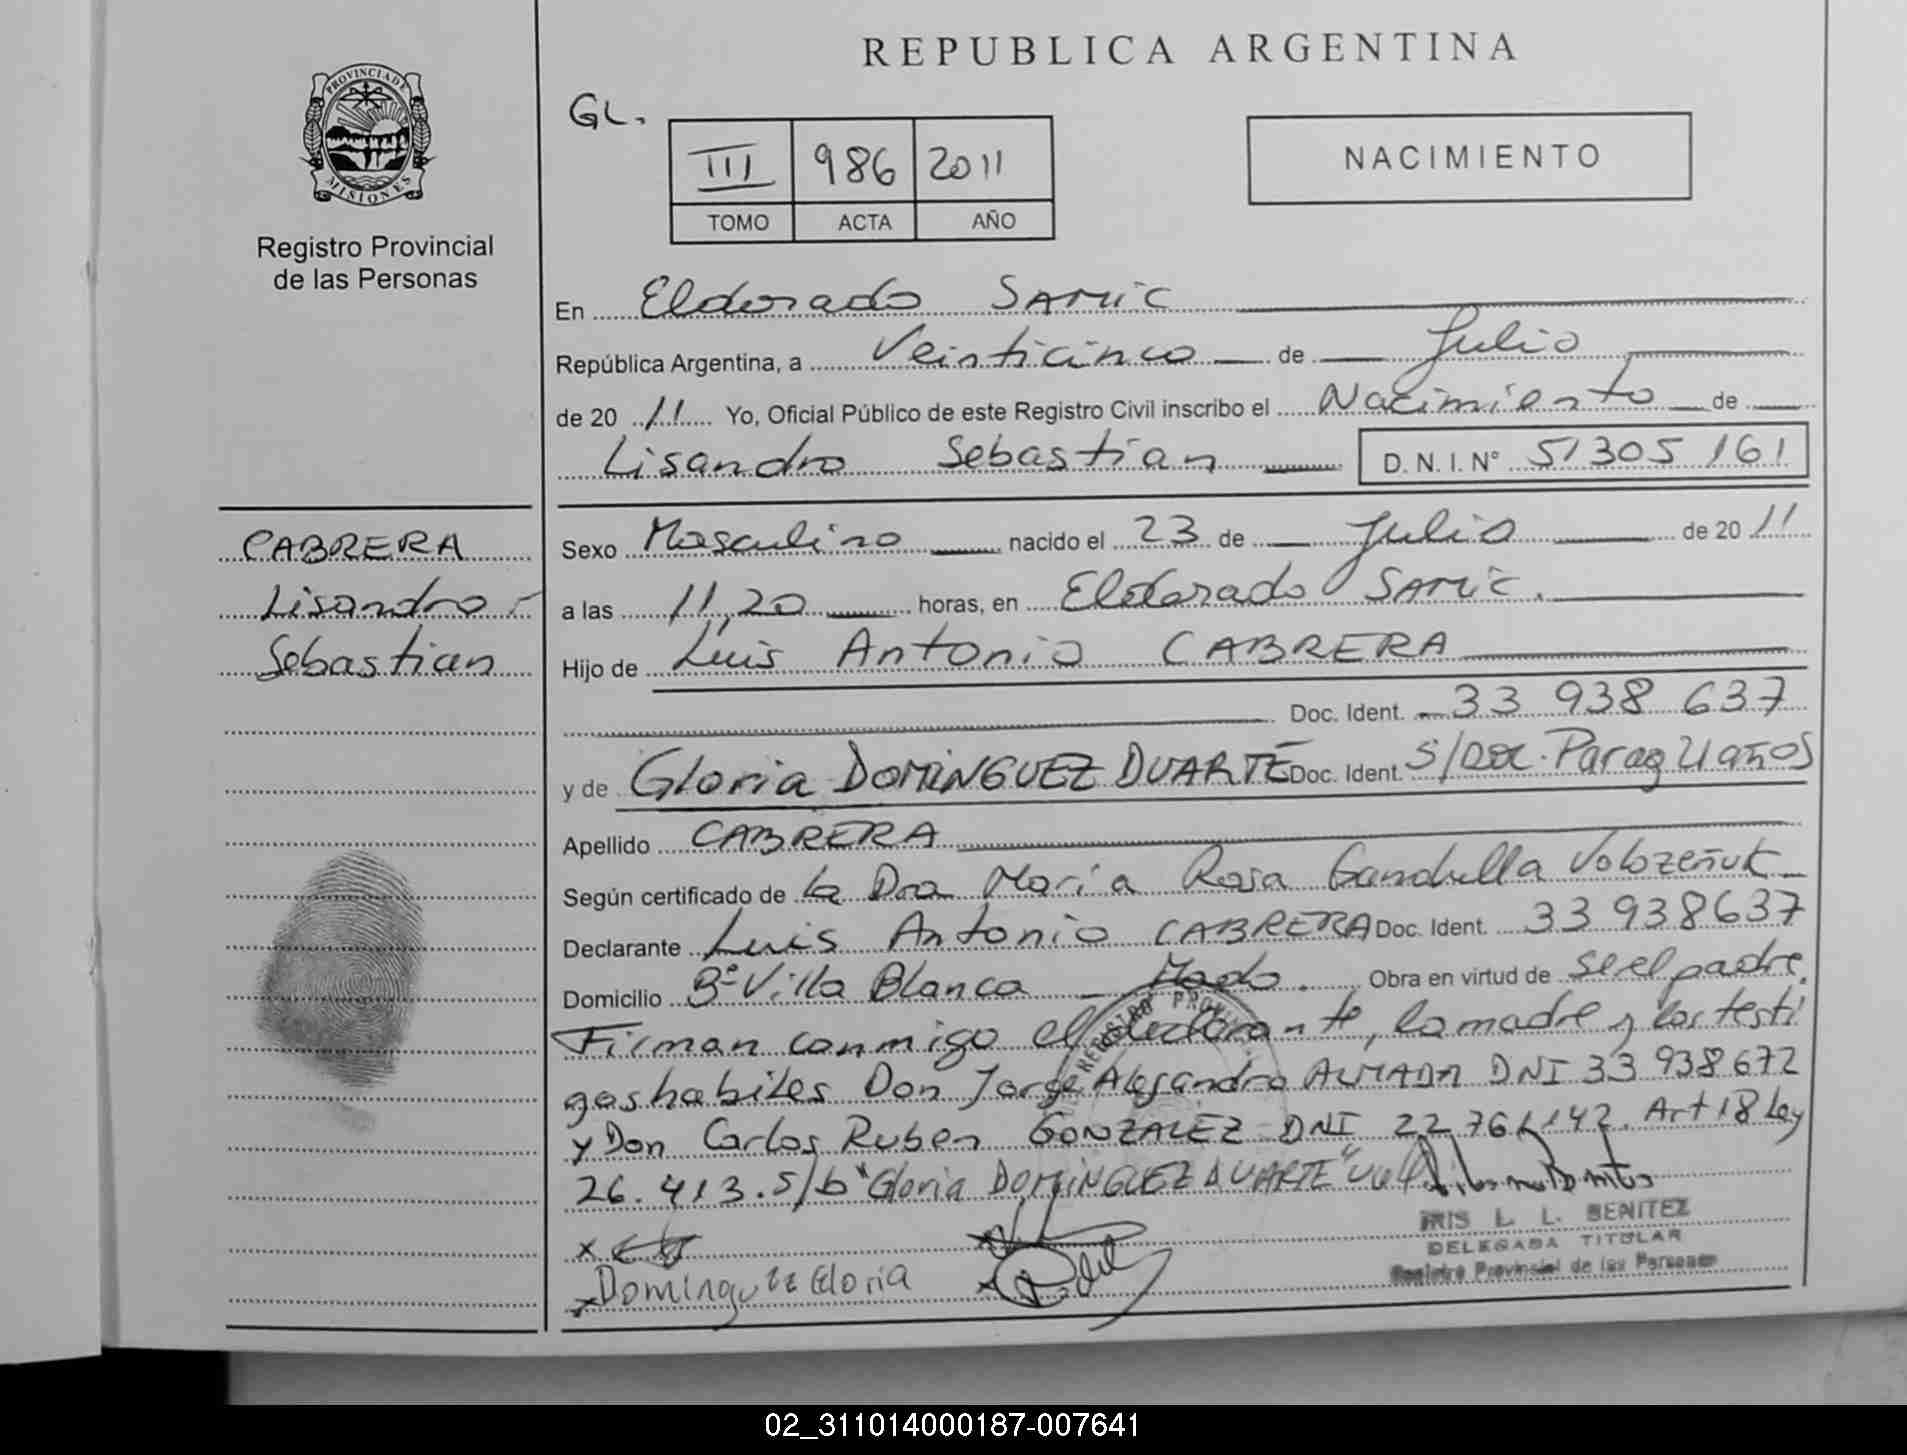 REPUBLICA ARGENTINA
PROVINCIA DE
MISIONES
Registro Provincial
de las Personas
GL.
III 986 2011
TOMO ACTA AÑO
NACIMIENTO
En Eldorado SAMIC
República Argentina, a Veinticinco de Julio
de 20 11 Yo, Oficial Público de este Registro Civil inscribo el Nacimiento de
Lisandro Sebastian D. N. I. N° 51305161
CABRERA
Lisandro
Sebastian
Sexo Masculino nacido el 23 de Julio de 20 11
a las 11,20 horas, en Eldorado SAMIC.
Hijo de Luis Antonio CABRERA
Doc. Ident. 33 938 637
y de Gloria DOMINGUEZ DUARTE Doc. Ident. S/Doc. Parag 21 años
Apellido CABRERA
Según certificado de la Dra Maria Rosa Gandulla
Declarante Luis Antonio CABRERA Doc. Ident. 33 938637
Domicilio B° Villa Blanca Mado. Obra en virtud de se el padre.
Firman conmigo el declarante, la madre y los testi
gos habiles Don Jorge Alejandro ALMADA DNI 33 938672
y Don Carlos Ruben GONZALEZ DNI 22 761142. Art 18 Ley
26.413. S/b "Gloria DOMINGUEZ DUARTE"
REGISTRO
IRIS L. L. BENITEZ
DELEGADA TITULAR
Registro Provincial de las Personas
x
x Dominguez Gloria
02_311014000187-007641